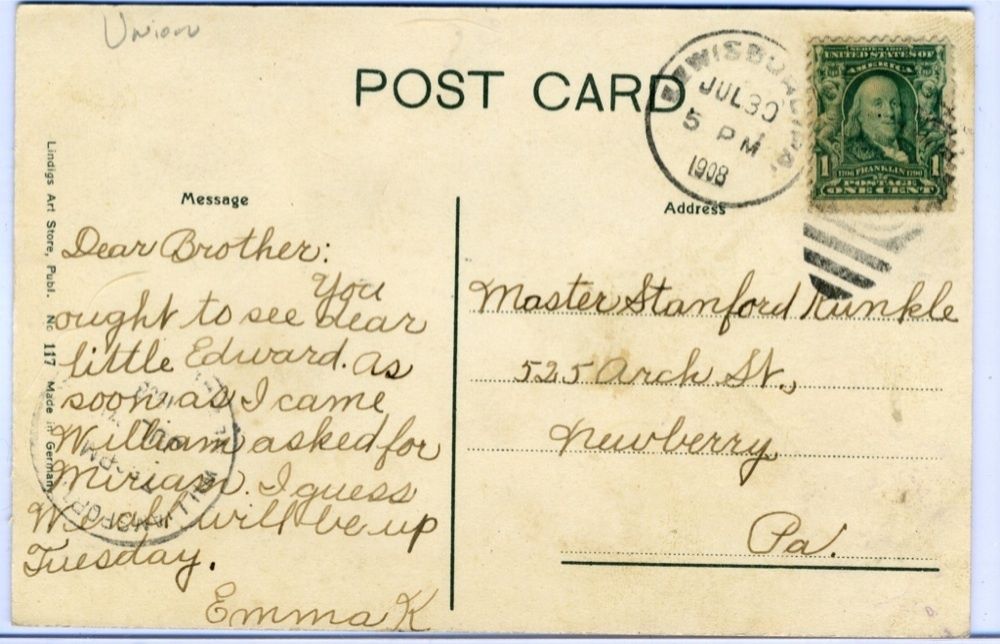 Union
POST CARD
LEWISBURG, PA.
JUL 30
5 PM
1908
SERIES 1902
UNITED STATES OF
AMERICA
1 1706 FRANKLIN 1790 1
POSTAGE
ONE CENT
Lindigs Art Store, Publ. No 117 Made in Germany
Message
Dear Brother:
You
ought to see dear
little Edward. As
soon as I came
William asked for
Miriam. I guess
We all will be up
Tuesday.
Emma K
Address
Master Stanford Kunkle
525 Arch St.,
Newberry,
Pa.